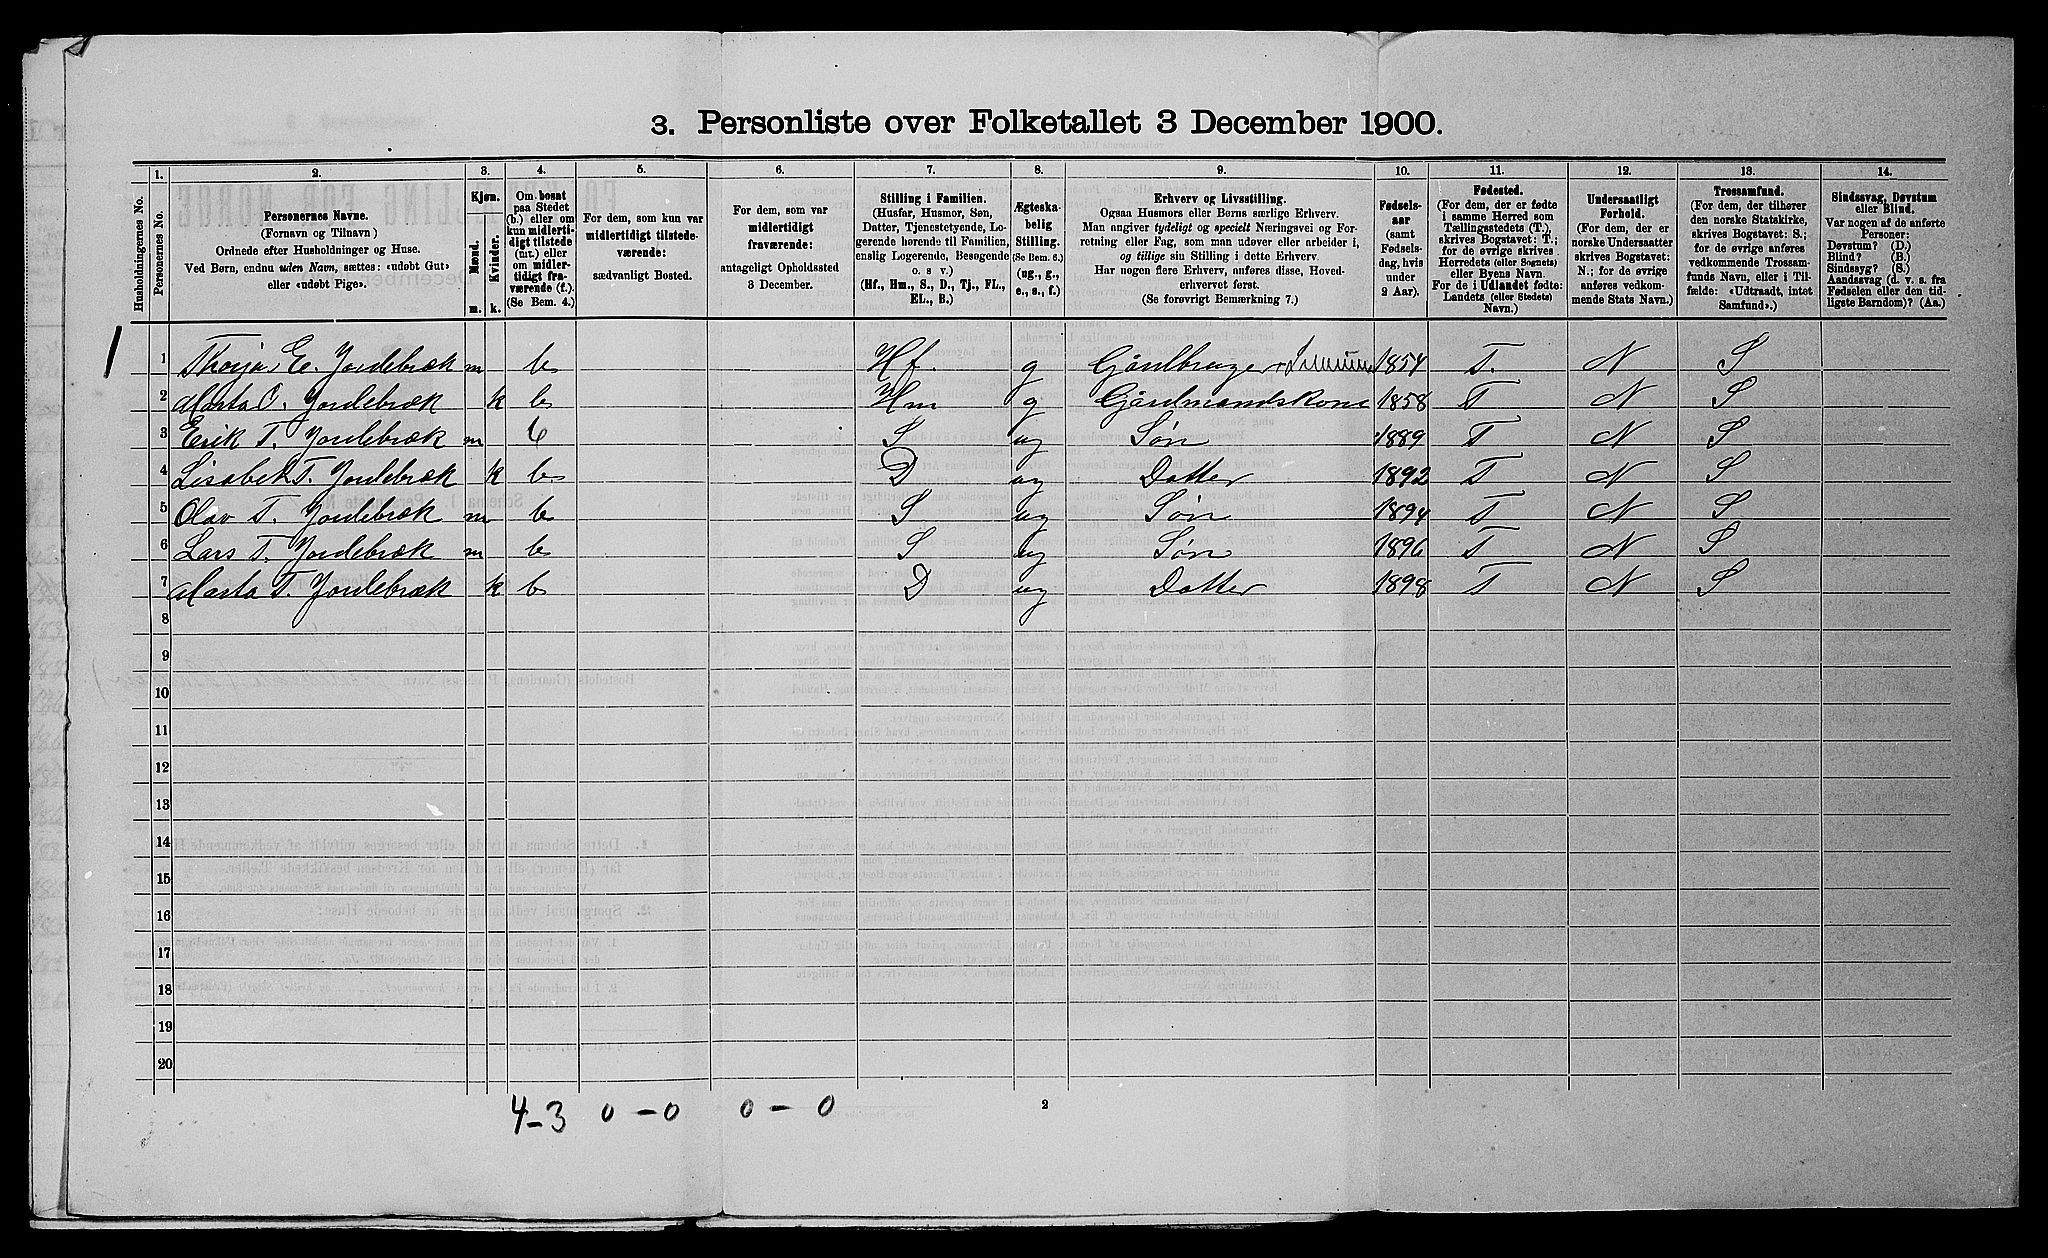 3. Personliste over Folketallet 3 December 1900.
Husholdningernes No.
1. Personernes No.
2. Personernes Navne. (Fornavn og Tilnavn) Ordnede efter Husholdninger og Huse. Ved Børn, endnu uden Navn, sættes: «udøbt Gut» eller «udøbt Pige».
3. Kjøn. Mænd. m. Kvinder. k.
4. Om bosat paa Stedet (b.) eller om kun midlertidigt tilstede (mt.) eller om midlertidigt fraværende (f.) (Se Bem. 4.)
5. For dem, som kun var midlertidigt tilstedeværende: sædvanligt Bosted.
6. For dem, som var midlertidigt fraværende: antageligt Opholdssted 3 December.
7. Stilling i Familien. (Husfar, Husmor, Søn, Datter, Tjenestetyende, Logerende hørende til Familien, enslig Logerende, Besøgende o. s v.) (Hf., Hm., S., D., Tj., FL., EL., B.)
8. Ægteskabelig Stilling. (Se Bem. 6.) (ug., g., e., s., f.)
9. Erhverv og Livsstilling. Ogsaa Husmors eller Børns særlige Erhverv. Man angiver tydeligt og specielt Næringsvei og Forretning eller Fag, som man udøver eller arbeider i, og tillige sin Stilling i dette Erhverv. Har nogen flere Erhverv, anføres disse, Hovederhvervet først. (Se forøvrigt Bemærkning 7.)
10. Fødselsaar (samt Fødselsdag, hvis under 2 Aar).
11. Fødested. (For dem, der er fødte i samme Herred som Tællingsstedets (T.), skrives Bogstavet: T.; for de øvrige skrives Herredets (eller Sognets) eller Byens Navn. For de i Udlandet fødte: Landets (eller Stedets) Navn.)
12. Undersaatligt Forhold. (For dem, der er norske Undersaatter skrives Bogstavet: N.; for de øvrige anføres vedkommende Stats Navn.)
13. Trossamfund. (For dem, der tilhører den norske Statskirke, skrives Bogstavet: S.; for de øvrige anføres vedkommende Trossamfunds Navn, eller i Tilfælde: «Udtraadt, intet Samfund».)
14. Sindssvag, Døvstum eller Blind. Var nogen af de anførte Personer: Døvstum? (D.) Blind? (B.) Sindssyg? (S.) Aandssvag (d. v. s. fra Fødselen eller den tidligste Barndom)? (Aa.)
1 1 E. Jordebræk m b Hf. g Gårdbruger 1854 T. N S
2 Marta O. Jordebræk k b Hm g Gårdmandskone 1858 T N S
3 Erik T. Jordebræk m b S ug Søn 1889 T N S
4 Lisabet T. Jordebræk k b D ug Datter 1892 T N S
5 Olav T. Jordebræk m b S ug Søn 1894 T N S
6 Lars T. Jordebræk m b S ug Søn 1896 T N S
7 Marta T. Jordebræk k b D ug Datter 1898 T N S
8
9
10
11
12
13
14
15
16
17
18
19
20
4-3 0-0 0-0
2